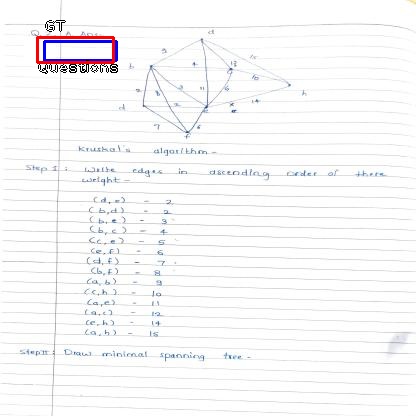 GT
Questions
a
9
15
b
4
13
c
10
h
2
8
3
11
6
14
d
2
e
7
6
f
Kruskal's algorithm -
Step I : Write edges in ascending order of there
weight -
(b,d) - 2
(b,e) - 3
(b,c) - 4
(c,e) - 5
(e,f) - 6
(d,f) - 7
(b,f) - 8
(a,b) - 9
(c,h) - 10
(a,e) - 11
(a,c) - 12
(e,h) - 14
(a,h) - 15
Step II : Draw minimal spanning tree -